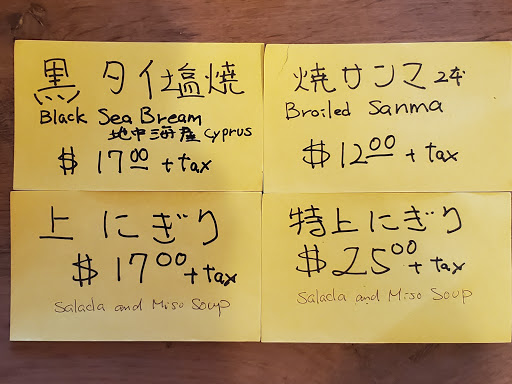 黒タイ塩焼
Black Sea Bream
地中海産 Cyprus
$ 17.00 + tax
焼サンマ 2本
Broiled Sanma
$ 12.00 + tax
上にぎり
$ 17.00 + tax
Salada and Miso Soup
特上にぎり
$ 25.00 + tax
Salada and Miso Soup